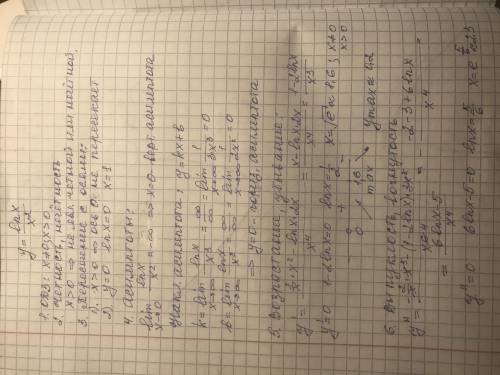 y = lnx / x²
1. ОДЗ: x≠0; x>0
2. Чётность, нечётность
x>0 ⇒ не явл. чётной или нечётной.
3. Пересечение с осями:
1) x>0 ⇒ ось oy не пересекает
2) y=0 lnx=0 x=1
4. Асимптоты:
lim x→0 lnx / x² = -∞ ⇒ x=0 верт. асимптота
y=kx+b
k = lim x→∞ lnx / x³ = ∞/∞ = lim x→∞ 1 / 3x³ = 0
b = lim x→∞ lnx / x² = ∞/∞ = lim x→∞ 1 / 2x² = 0
⇒ y=0 - гориз. асимптота
5. Возрастание, убывание:
y' = (1/x · x² - lnx · 2x) / x⁴ = (x - lnx · 2x) / x⁴ = (1-2lnx) / x³
y'=0 1-2lnx=0 lnx=1/2 x=√e≈1,6; x≠0 x>0
0 + 1,6 -
max ymax≈0,2
6. Выпуклость, вогнутость
y'' = (-2/x · x³ - (1-2lnx)·3x²) / x⁶ = (-2-3+6lnx) / x⁴ =
= (6lnx-5) / x⁴
y''=0 6lnx-5=0 lnx=5/6 x=e^(5/6)≈2,3